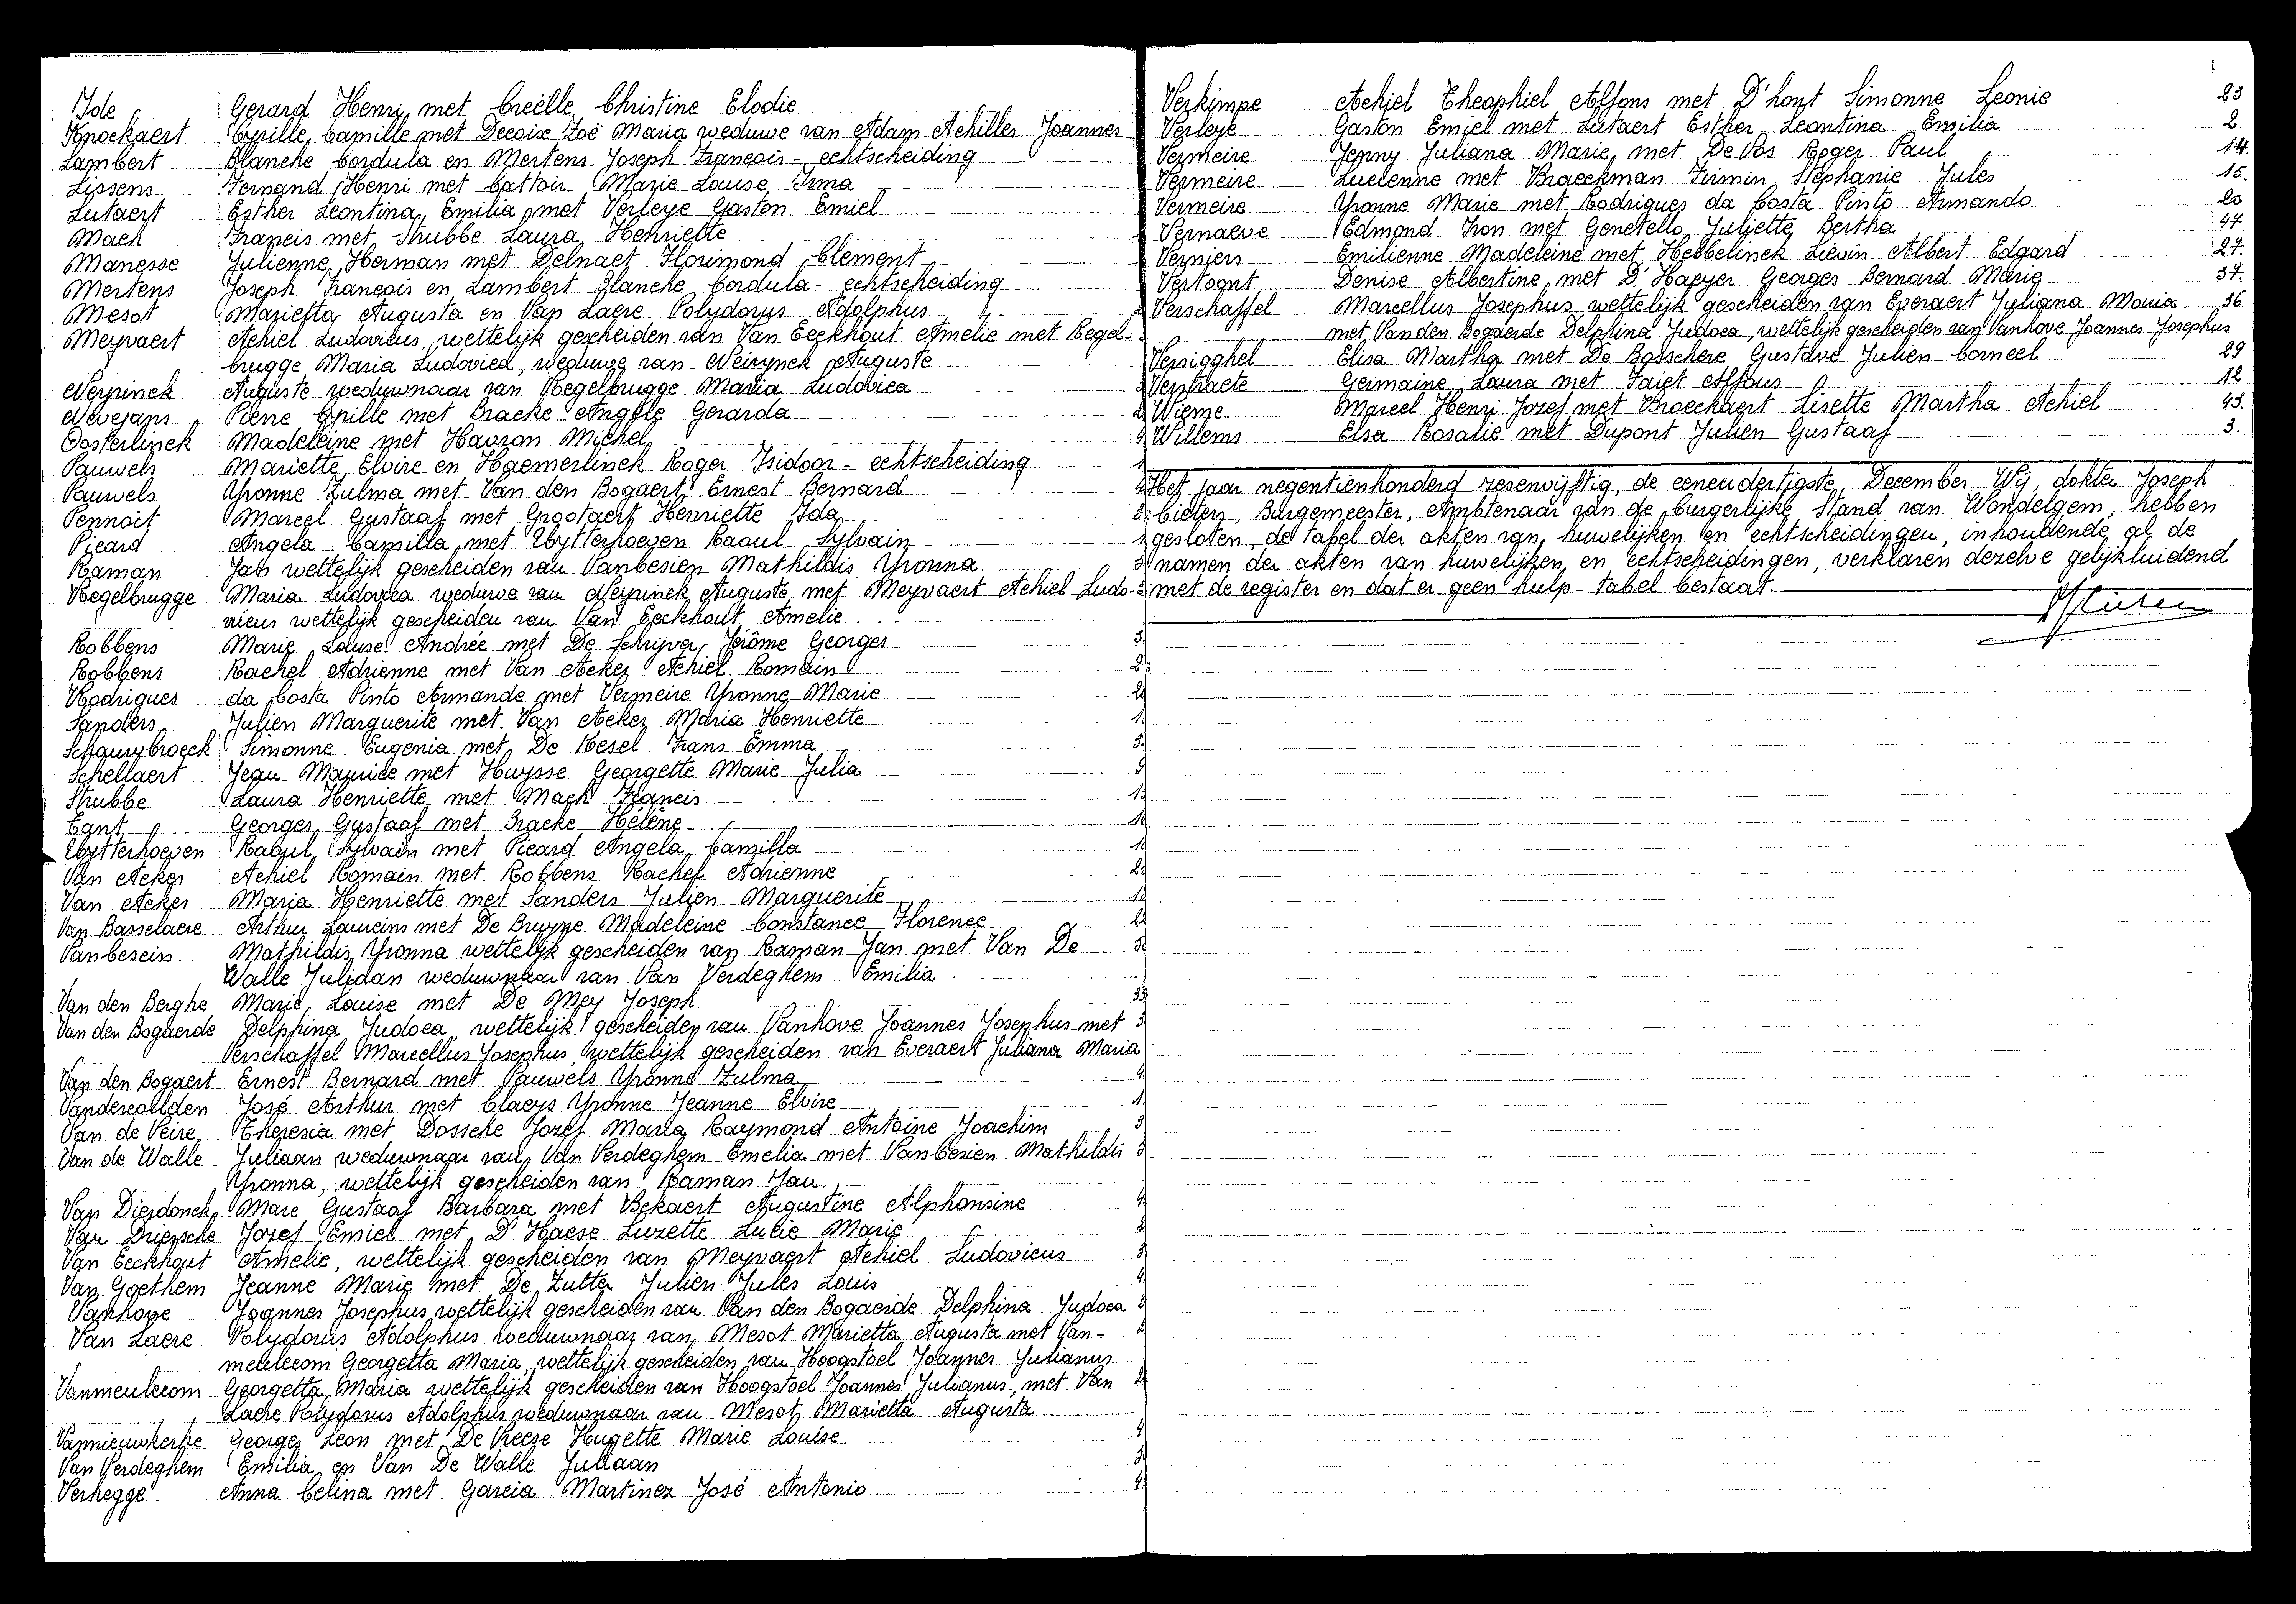 Ide Gerard Henri met Creëlle Christine Elodie
Knockaert Cyrille Camille met Decoix Zoë Maria weduwe van Adam Achilles Joannes
Lambert Blanche Cordula en Mertens Joseph François - echtscheiding
Lissens Fernand Henri met Cattoir Marie Louise Irma
Lutaert Esther Leontina Emilia met Verleye Gaston Emiel
Mach Francis met Strubbe Laura Henriette
Manesse Julienne Herman met Delnaet Florimond Clement
Mertens Joseph François en Lambert Blanche Cordula - echtscheiding
Mesot Marietta Augusta en Van Laere Polydorus Adolphus
Meyvaert Achiel Ludovicus, wettelijk gescheiden van Van Eeckhout Amelie met Regel-
brugge Maria Ludovica, weduwe van Neirynck Auguste
Neyrinck Auguste weduwnaar van Regelbrugge Maria Ludovica
Nevejans Rene Cyrille met Bracke Angèle Gerarda
Oosterlinck Madeleine met Havron Michel
Pauwels Mariette Elvire en Haemerlinck Roger Isidoor - echtscheiding
Pauwels Yvonne Zulma met Van den Bogaert Ernest Bernard
Pennoit Marcel Gustaaf met Grootaert Henriette Ida
Picard Angela Camilla met Uytterhoeven Raoul Sylvain
Raman Jan wettelijk gescheiden van Vanbesien Mathildis Yvonna
Regelbrugge Maria Ludovica weduwe van Neyrinck Auguste met Meyvaert Achiel Ludo-
vicus wettelijk gescheiden van Van Eeckhout Amelie
Robbens Marie Louise Andrée met De Schrijver Jérôme Georges
Robbens Rachel Adrienne met Van Acker Achiel Romain
Rodrigues da Costa Pinto Armande met Vermeire Yvonne Marie
Sanders Julien Marguerite met Van Acker Maria Henriette
Schaurybroeck Simonne Eugenia met De Kesel Frans Emma
Schellaert Jean Maurice met Huysse Georgette Marie Julia
Strubbe Laura Henriette met Mach Francis
Tant Georges Gustaaf met Bracke Hélène
Uytterhoeven Raoul Sylvain met Picard Angela Camilla
Van Acker Achiel Romain met Robbens Rachel Adrienne
Van Acker Maria Henriette met Sanders Julien Marguerite
Van Basselaere Arthur Laureins met De Bruyne Madeleine Constance Florence
Vanbesein Mathildis Yvonna wettelijk gescheiden van Raman Jan met Van De
Walle Juliaan weduwnaar van Van Verdeghem Emilia
Van den Berghe Marie Louise met De Mey Joseph
Van den Bogaerde Delphina Judoca wettelijk gescheiden van Vanhove Joannes Josephus met
Verschaffel Marcellus Josephus wettelijk gescheiden van Everaert Juliana Maria
Van den Bogaert Ernest Bernard met Pauwels Yvonne Zulma
Vandercoilden José Arthur met Claeys Yvonne Jeanne Elvire
Van de Veire Theresia met Dossche Jozef Maria Raymond Antoine Joachim
Van de Walle Juliaan weduwnaar van Van Verdeghem Emelia met Vanbesien Mathildis
Yvonna, wettelijk gescheiden van Raman Jan
Van Dierdonck Marc Gustaaf Barbara met Bekaert Augustine Alphonsine
Van Driessche Jozef Emiel met D'Haese Luzette Lucie Marie
Van Eeckhout Amelie, wettelijk gescheiden van Meyvaert Achiel Ludovicus
Van Goethem Jeanne Marie met De Zutter Julien Jules Louis
Vanhove Joannes Josephus wettelijk gescheiden van Van den Bogaerde Delphina Judoca
Van Laere Polydorus Adolphus weduwnaar van Mesot Marietta Augusta met Van-
meulecom Georgetta Maria wettelijk gescheiden van Hoogstoel Joannes Julianus
Vanmeulecom Georgetta Maria wettelijk gescheiden van Hoogstoel Joannes Julianus, met Van
Laere Polydorus Adolphus weduwnaar van Mesot Marietta Augusta
Vannieuwkerke Georges Leon met De Vreese Hugette Marie Louise
Van Verdeghem Emilia en Van De Walle Juliaan
Verhegge Anna Celina met Garcia Martinez José Antonio
Verkimpe Achiel Theophiel Alfons met D'hont Simonne Leonie 23
Verleye Gaston Emiel met Lutaert Esther Leontina Emilia 2
Vermeire Jenny Juliana Marie met De Vos Roger Paul 14.
Vermeire Lucienne met Braeckman Firmin Stephanie Jules 15.
Vermeire Yvonne Marie met Rodrigues da Costa Pinto Armando 20
Vernaeve Edmond Iron met Genetello Juliette Bertha 47
Verniers Emilienne Madeleine met Hebbelinck Lievin Albert Edgard 27.
Vertognt Denise Albertine met D'Haeyer Georges Bernard Marie 37.
Verschaffel Marcellus Josephus wettelijk gescheiden van Everaert Juliana Maria 36
met Van den Bogaerde Delphina Judoca, wettelijk gescheiden van Vanhove Joannes Josephus
Versigghel Elisa Martha met De Bosschere Gustave Julien Corneel 29
Verstraete Germaine Laura met Faict Alfons 12
Wieme Marcel Henri Jozef met Broeckaert Lisette Martha Achiel 43.
Willems Elsa Rosalie met Dupont Julien Gustaaf 3.
Het jaar negentienhonderd zesenvijftig, de eenendertigste December Wij, dokter Joseph
Cieters, Burgemeester, Ambtenaar van de burgerlijke Stand van Wondelgem, hebben
gesloten, de tafel der akten van huwelijken en echtscheidingen, inhoudende al de
namen der akten van huwelijken en echtscheidingen, verklaren dezelve gelijkluidend
met de register en dat er geen hulp-tabel bestaat.